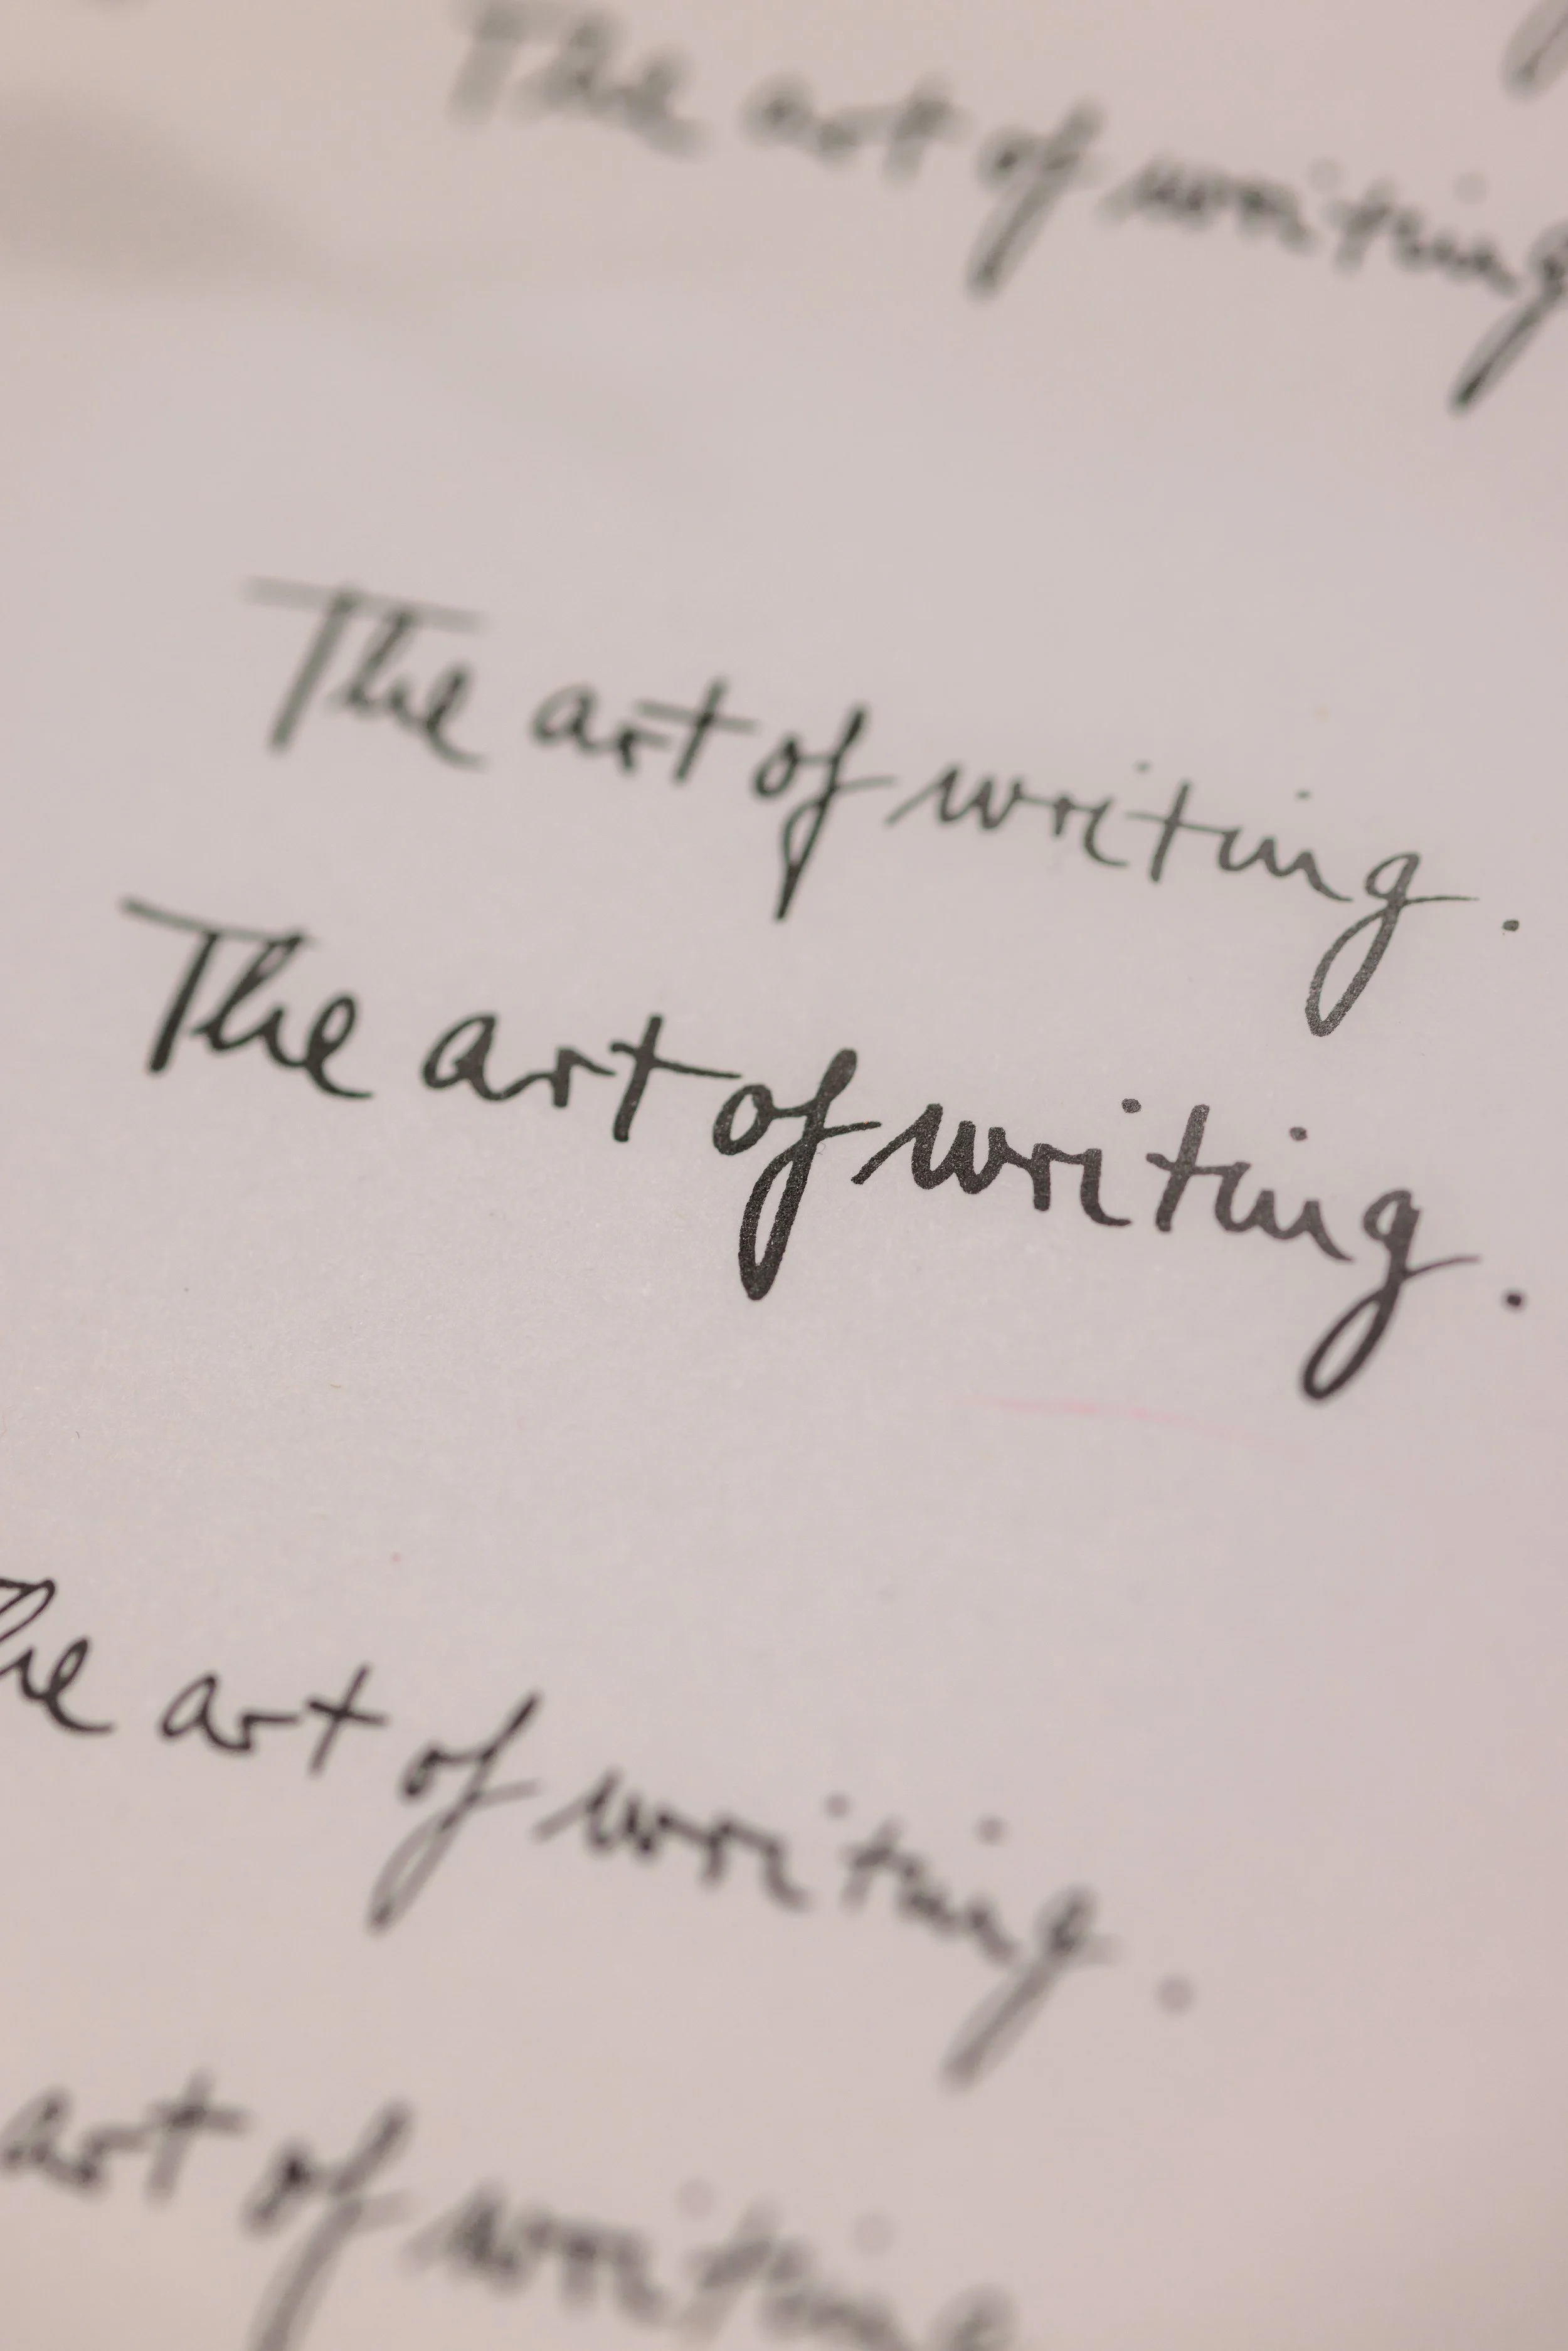 The art of writing
The art of writing.
The art of writing.
The art of writing.
art of writing